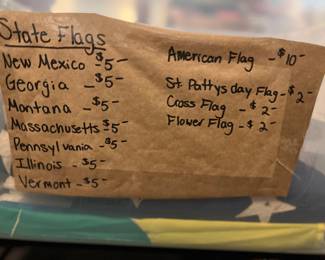 State Flags
New Mexico $5-
Georgia - $5-
Montana - $5-
Massachusetts $5-
Pennsylvania - $5-
Illinois - $5-
Vermont - $5-
American Flag - $10-
St. Pattys day Flag - $2-
Cross Flag - $2-
Flower Flag - $2-